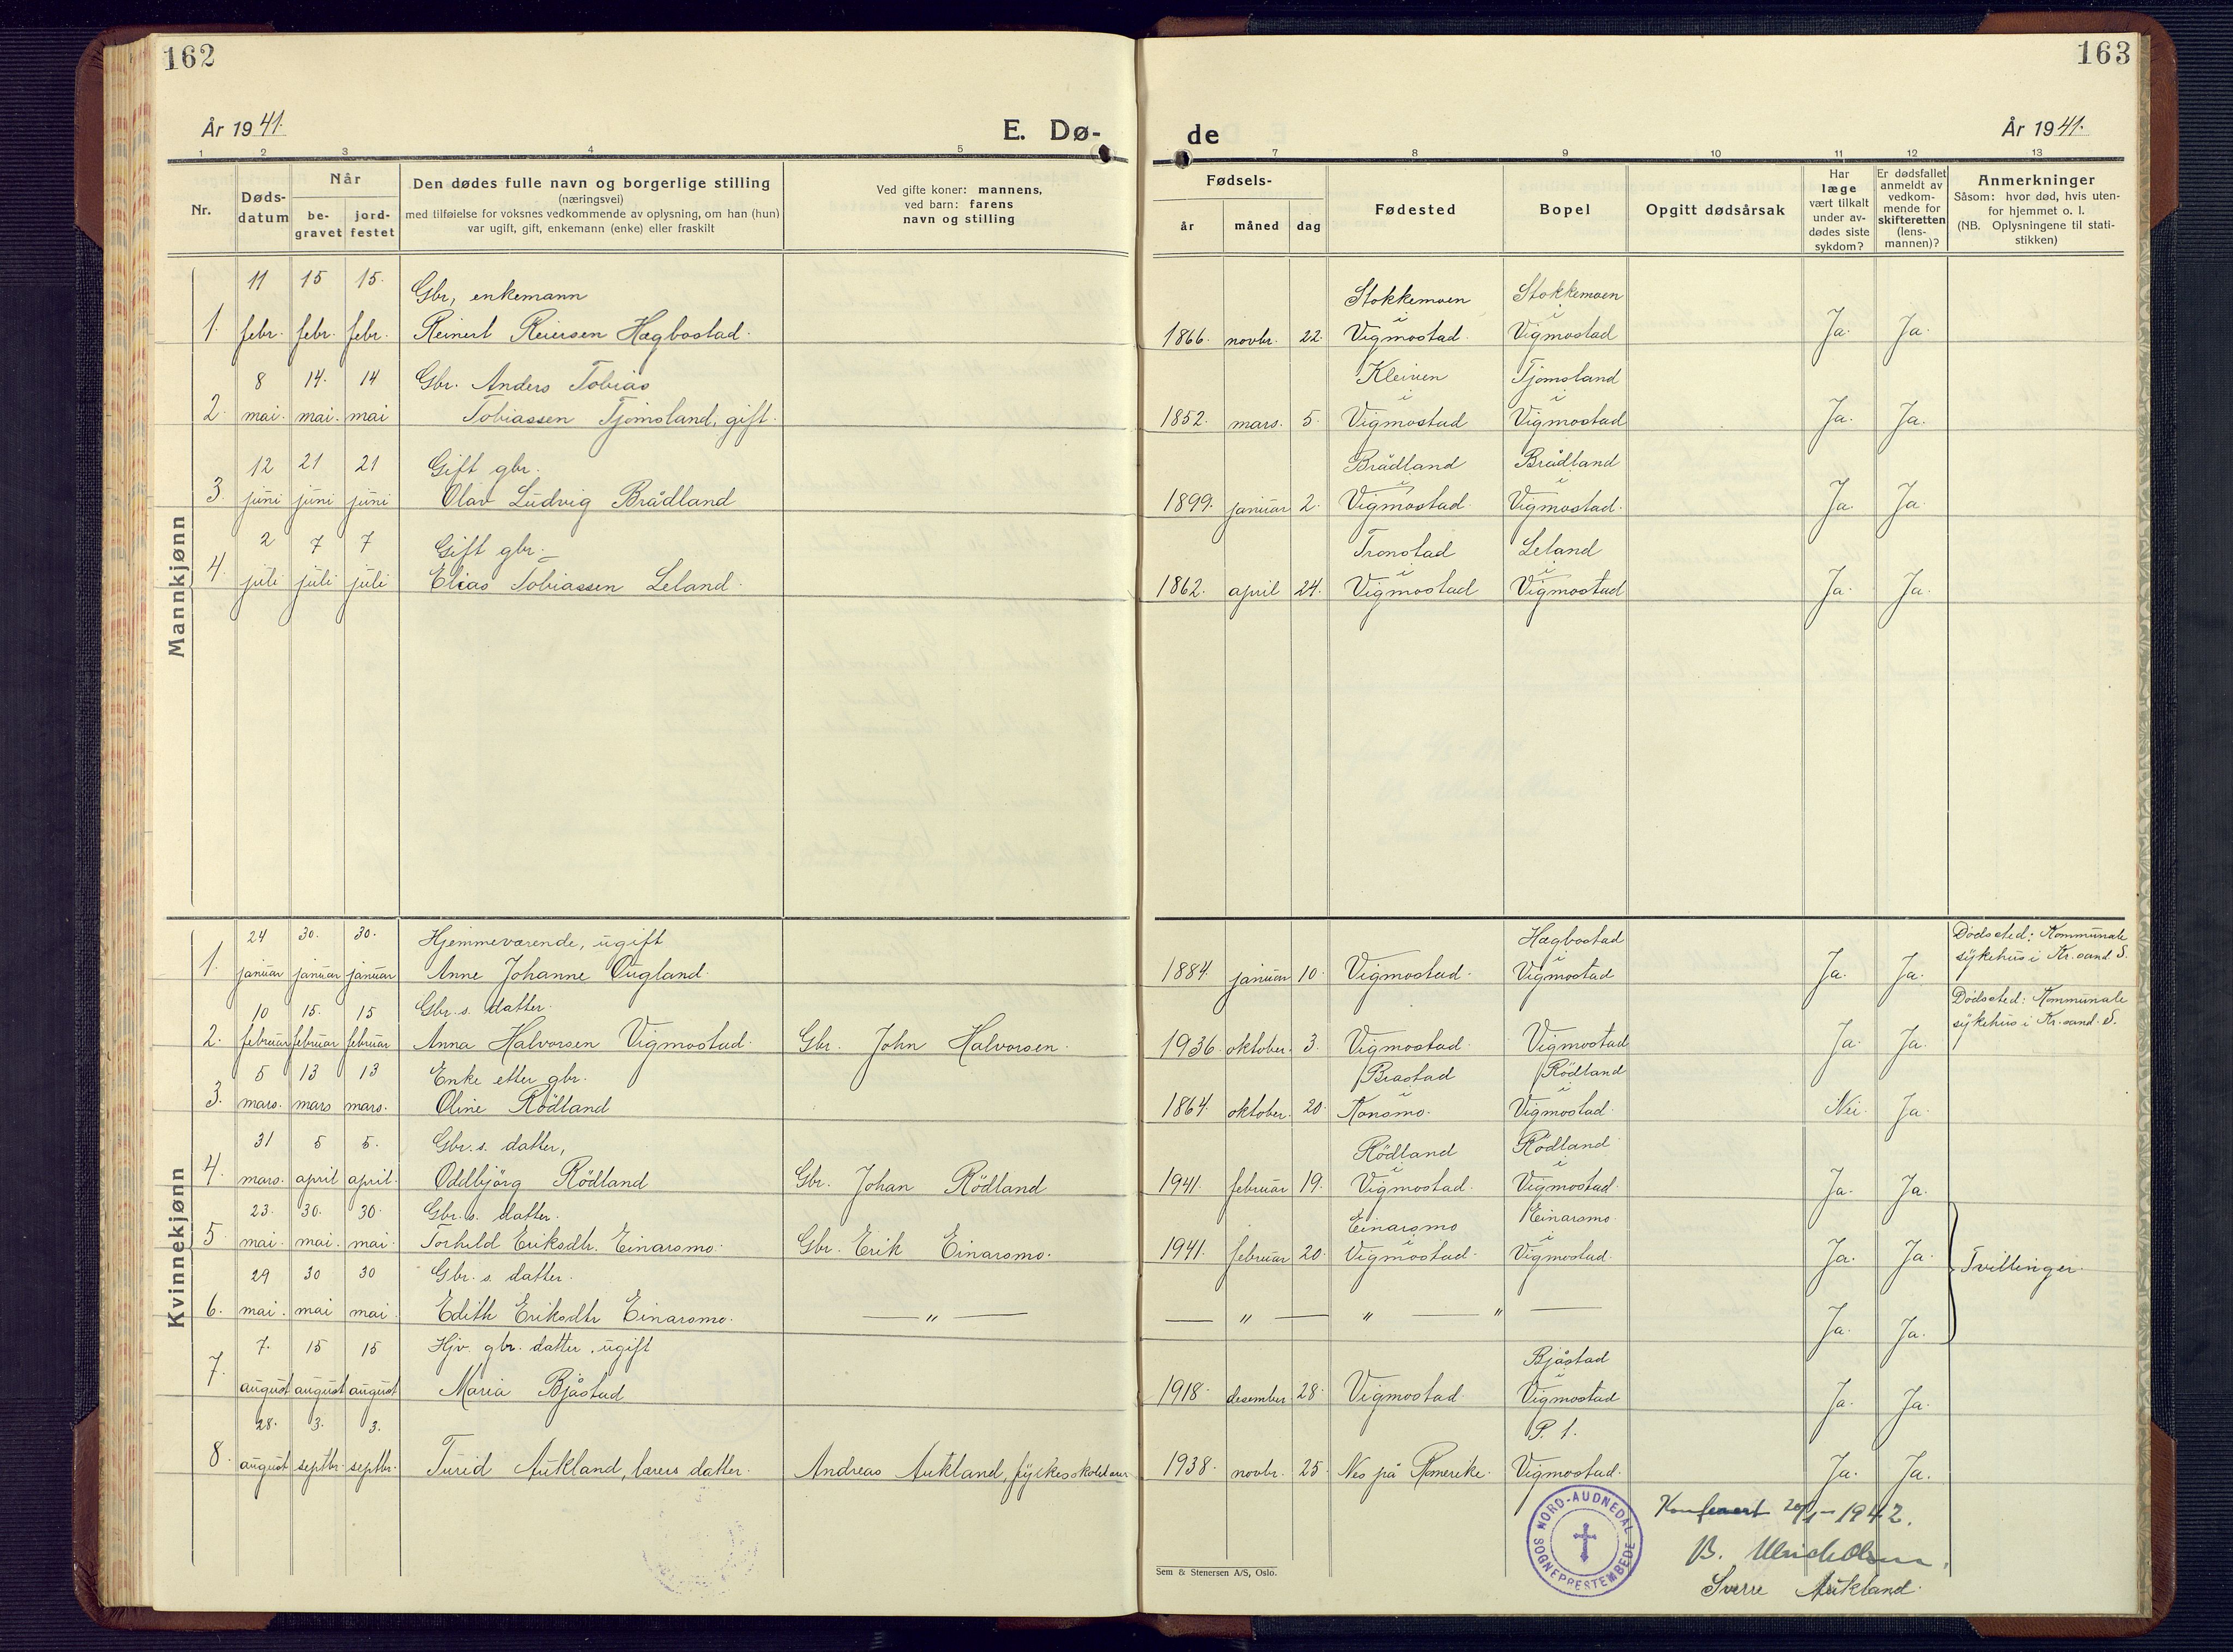 162
163
År 1941.
E. Dø-
de
År 1941.
1 2 3 4 5
7 8 9 10 11 12 13
Nr.
Døds-
datum
Når
be-
gravet
jord-
festet
Den dødes fulle navn og borgerlige stilling
(næringsvei)
med tilføielse for voksnes vedkommende av oplysning, om han (hun)
var ugift, gift, enkemann (enke) eller fraskilt
Ved gifte koner: mannens,
ved barn: farens
navn og stilling
Fødsels-
år måned dag
Fødested
Bopel
Opgitt dødsårsak
Har
læge
vært tilkalt
under av-
dødes siste
sykdom?
Er dødsfallet
anmeldt av
vedkom-
mende for
skifteretten
(lens-
mannen)?
Anmerkninger
Såsom: hvor død, hvis uten-
for hjemmet o. l.
(NB. Oplysningene til stati-
stikken)
Mannkjønn
11 15 15. Gbr, enkemann Stokkemoen Stokkemoen
i i
1. febr. febr. febr. Reinert Reiersen Hægbostad. 1866. novbr. 22. Vigmostad. Vigmostad Ja. Ja.
8 14. 14 Gbr. Anders Tobias Kleiven Tjomsland
i i
2. mai. mai. mai Tobiassen Tjomsland, gift. 1852. mars. 5. Vigmostad Vigmostad Ja. Ja.
12 21 21 Gift gbr. Brådland Brådland
i i
3. juni juni juni Olav Ludvig Brådland 1899. januar 2. Vigmostad. Vigmostad. Ja. Ja.
2 7 7 Gift gbr. Tronstad Leland
i i
4. juli juli juli Elias Tobiassen Leland. 1862. april 24. Vigmostad Vigmostad Ja. Ja.
Kvinnekjønn
24 30. 30. Hjemmeværende, ugift Hægbostad Dödssted: Kommunale
i sykehus i Kr.sand S.
1. januar januar januar Anne Johanne Ougland. 1884. januar 10. Vigmostad. Vigmostad Ja. Ja.
10 15. 15 Gbr.s. datter. Dödssted: Kommunale
sykehus i Kr.sand. S.
2. februar februar februar Anna Halvorsen Vigmostad. Gbr. John Halvorsen. 1936. oktober. 3. Vigmostad. Vigmostad Ja. Ja.
5 13 13 Enke etter gbr. Brastad Rödland
i i
3. mars. mars mars. Oline Rödland 1864. oktober. 20. Konsmo. Vigmostad. Nei. Ja.
31 5 5. Gbr.s. datter, Rödland Rödland
i i
4. mars. april april. Oddbjörg Rödland Gbr. Johan Rödland 1941. februar 19. Vigmostad. Vigmostad. Ja. Ja.
23. 30. 30. Gbr.s. datter. Einarsmo Einarsmo.
i i
5 mai. mai. mai. Torhild Eriksdtr. Einarsmo. Gbr. Erik Einarsmo. 1941. februar 20. Vigmostad. Vigmostad. Ja. Ja. Tvillinger.
29 30 30 Gbr.s. datter.
6. mai. mai mai. Edith Eriksdtr Einarsmo. — " — — " — " — " — Ja. Ja.
7. 15 15 Hjv. gbr. datter, ugift Bjåstad
i
7. august august august Maria Bjåstad 1918. desember 28. Vigmostad. Vigmostad Ja. Ja.
28. 3. 3. P. t.
8. august septbr. septbr. Turid Aukland, lærers datter. Andreas Aukland, 1938. novbr. 25. Nes på Romerike. Vigmostad. Ja. Ja.
NORD-AUDNEDAL SOGNEPRESTEMBEDE
Konferert 20/1-1942.
B. Ulrich Olsen.
Sverre Aukland.
Sem & Stenersen A/S, Oslo.